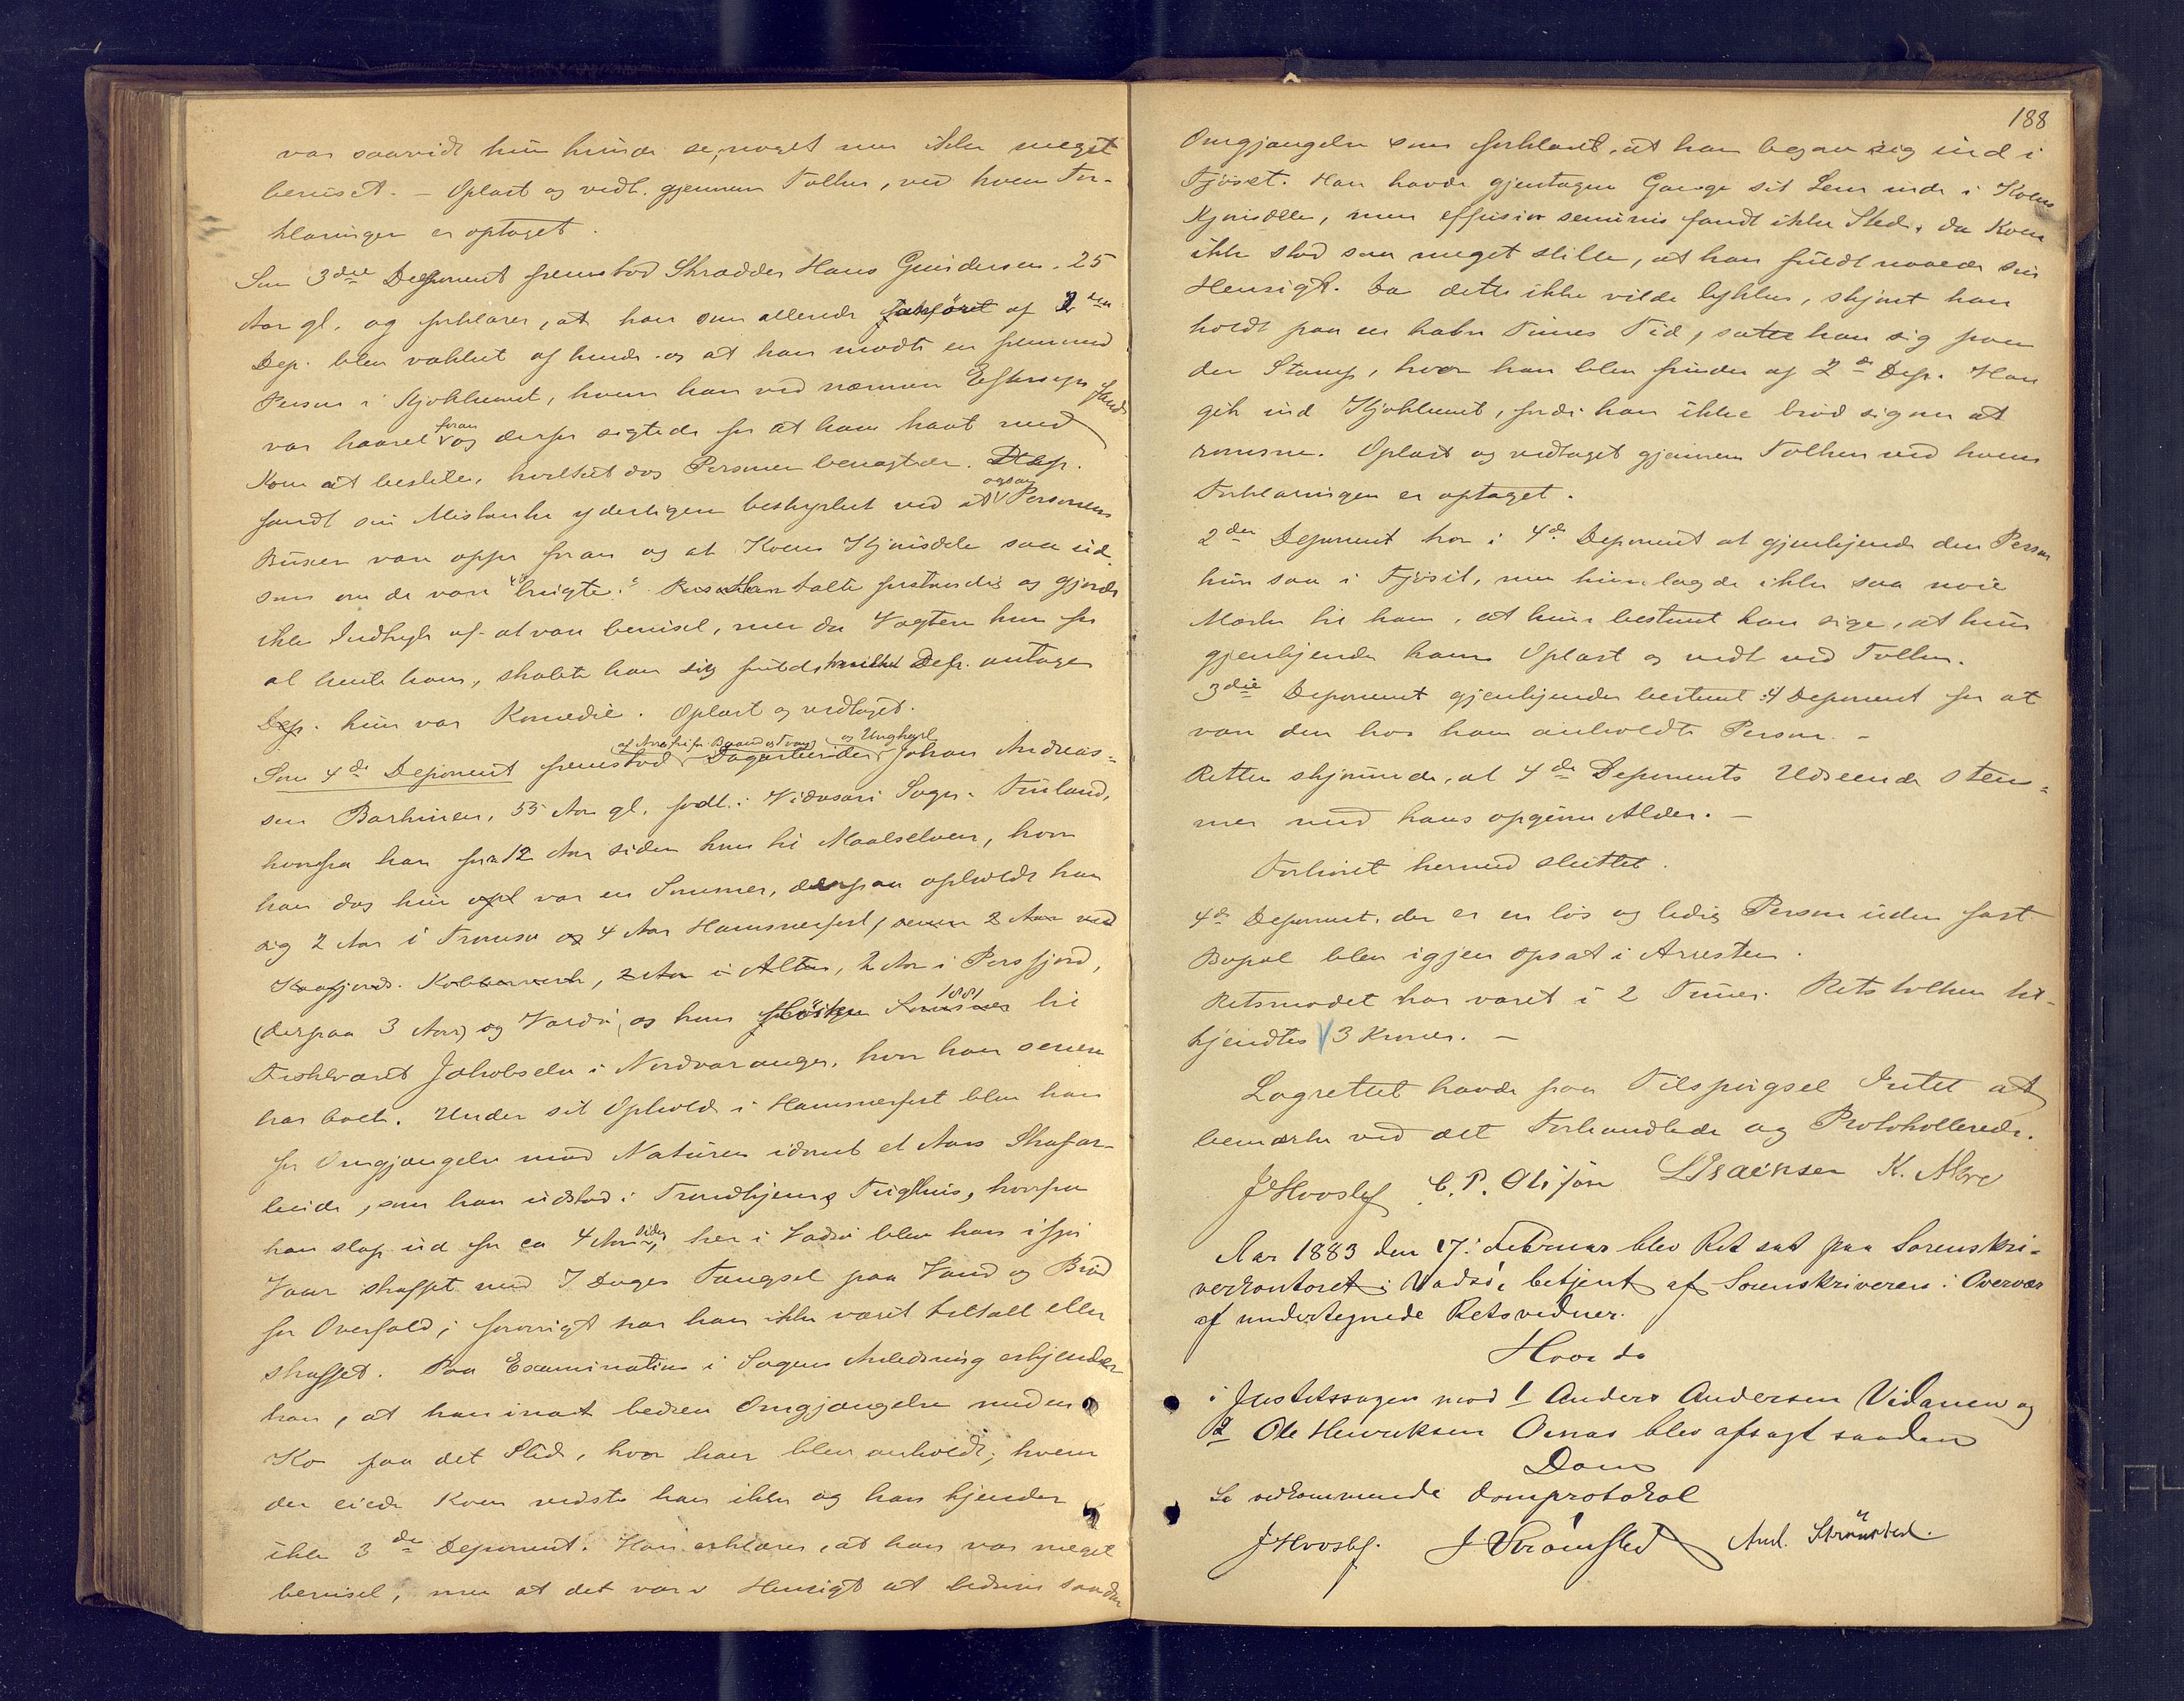 var saavidt hun kunde se, noget men ikke meget
beruset. – Oplæst og vedt. gjennem Tolken, ved hvem For-
klaringen er optaget.
Som 3die Deponent fremstod Skrædder Hans Gundersen, 25
Aar gl. og forklarer, at han som allerede anført af 2den
Dep. blev vækket af hende og at han mødte en fremmed
Person i Kjøkkenet, hvem han ved nærmere Eftersyn fandt
var haaret foran og derfor sigtede for at have havt med
Koen at bestille, hvilket dog Personen benægtede. Dep.
fandt sin Mistanke yderligere bestyrket ved at ogsaa Personens
Buxer vare oppe foran og at Koens Kjønsdele saa ud
som om de vare "brugte". Han talte forstandig og gjorde
ikke Indtryk af at være beruset, men da Vægteren kom for
at hente ham, skabte han sig fuld, hvilket Dep. antager
kun var Komedie. Oplæst og vedtaget.
Som 4de Deponent fremstod af Arresten fri for Baand og Tvang Dagarbeider og Ungkarl Johan Andreas-
sen Barhinen, 55 Aar gl. født i Sogn i Finland,
hvorfra han for 12 Aar siden kom til Maalselven, hvor
han dog kun var en Sommer, derpaa opholdt han
sig 2 Aar i Tromsø og 4 Aar Hammerfest, senere 2 Aar ved
Kaafjords Kobberverk, 2 Aar i Alten, 2 Aar i Persfjord,
(derpaa 3 Aar) og Vardø, og kom 1881 til
Fiskeværet Jakobselv i Nordvaranger, hvor han senere
har boet. Under sit Ophold i Hammerfest blev han
for Omgjængelse mod Naturen idømt et Aars Strafar-
beide, som han udstod i Trondhjems Tugthus, hvorfra
han slap ud for ca 4 Aar siden, her i Vadsø blev han ifjor
Vaar straffet med 7 Dages Fængsel paa Vand og Brød
for Overfald; forøvrigt har han ikke været tiltalt eller
straffet. Paa Examination i Sagens Anledning erkjender
han, at han inat bedrev Omgjængelse med en
Ko paa det Sted, hvor han blev anholdt; hvem
der eiede Koen vidste han ikke og han kjender
ikke 3de Deponent. Han erklærer, at han var meget
beruset, men at det var i Hensigt at bedrive saadan
188
Omgjængelse som forklaret, at han begav sig ind i
Fjøset. Han havde gjentagne Gange sit Lem inde i Koens
Kjønsdele, men effusio seminis fandt ikke Sted, da Koen
ikke stod saa meget stille, at han fuldt naaede sin
Hensigt. Da dette ikke vilde lykkes, skjønt han
holdt paa en halv Times Tid, satte han sig paa
den Stamp, hvor han blev funden af 2de Dep. Han
gik ind Kjøkkenet, fordi han ikke brød sig om at
rømme. Oplæst og vedtaget gjennem Tolken ved hvem
Forklaringen er optaget.
2den Deponent tror i 4de Deponent at gjenkjende den Person
hun saa i Fjøset, men hun lagde ikke saa nøie
Mærke til ham, at hun bestemt kan sige, at hun
gjenkjender ham. Oplæst og vedt ved Tolken.
3die Deponent gjenkjender bestemt 4 Deponent for at
være den hos ham anholdte Person. –
Retten skjønnede, at 4de Deponents Udseende stem-
mer med hans opgivne Alder. –
Forhøret hermed sluttet.
4de Deponent, der er en løs og ledig Person uden fast
Bopæl blev igjen opsat i Arresten.
Retsmødet har varet i 2 Timer. Retstolken til-
kjendtes 3 Kroner. –
Lagrettet havde paa Tilspørgsel Intet at
bemærke ved det Forhandlede og Protokollerede.
J Hvoslef C. P. Olsson L Isaksen K. Moe
Aar 1883 den 17. Februar blev Ret sat paa Sorenskri-
verkontoret i Vadsø, betjent af Sorenskriveren i Overvær
af undertegnede Retsvidner.
Hvor da
i Justitssagen mod 1 Anders Andersen Vidanen og
2 Ole Henriksen Oenas blev afsagt saadan
Dom
Se vedkommende Domprotokol
J Hvoslef. J Strømsted And. Strømsted.